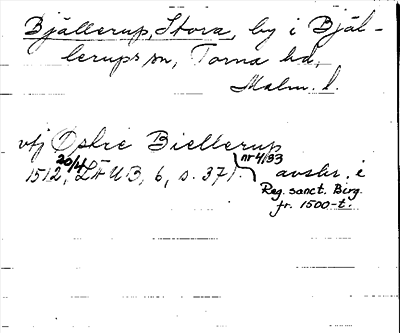 Bjällerup, Stora, by i Bjäl-
lerups sn, Torna hd,
Malm. l.
vfj Østre Biellerup
nr 4193
1512 20/4, LÄUB, 6, s. 371. avskr. i
Reg. sanct. Birg.
fr. 1500-t.